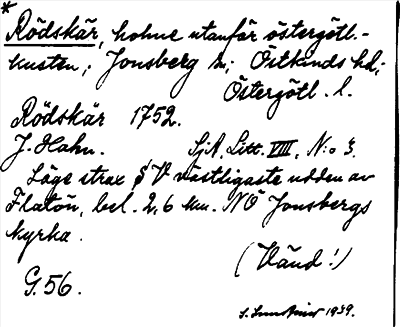 *
Rödskär, holme utanför östergötl.-
kusten; Jonsberg sn; Östkinds hd;
Östergötl. l.
Rödskär 1752.
J. Hahn. SjA, Litt. VIII, N:o 3.
Läge strax S V västligaste udden av
Flatön, bel. 2,6 km. NÖ Jonsbergs
kyrka.
(Vänd!)
G. 56.
1939.